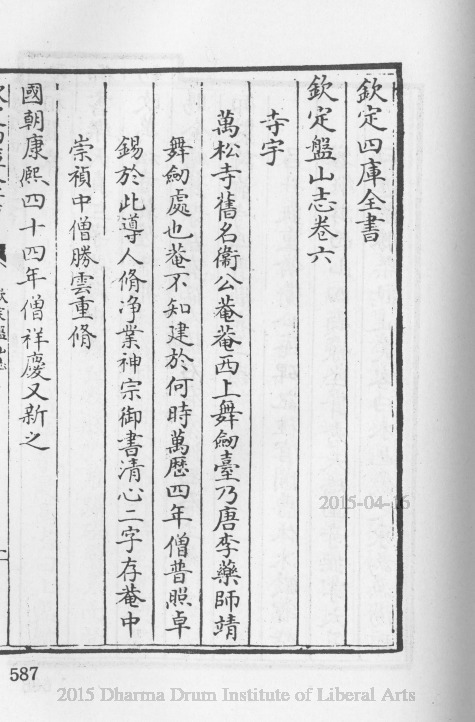 欽定四庫全書
欽定盤山志卷六
寺宇
萬松寺舊名衞公菴菴西上舞劒臺乃唐李藥師靖
舞劒處也菴不知建於何時萬歷四年僧普照卓
錫於此導人脩净業神宗御書清心二字存菴中
崇禎中僧勝雲重脩
國朝康熙四十四年僧祥慶又新之
2015-04-16
587
2015 Dharma Drum Institute of Liberal Arts